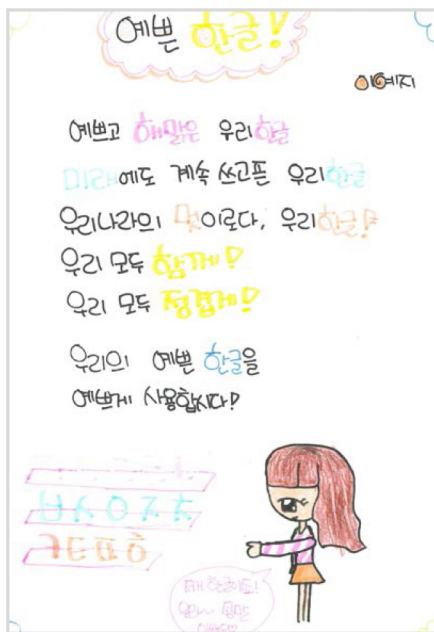 예쁜 한글!
이예지
예쁘고 해맑은 우리한글
미래에도 계속 쓰고픈 우리한글
우리나라의 멋이로다, 우리한글!
우리 모두 함께!
우리 모두 정겹게!
우리의 예쁜 한글을
예쁘게 사용합시다!
ㅂㅅㅇㅈㅊ
ㅋㅌㅍㅎ